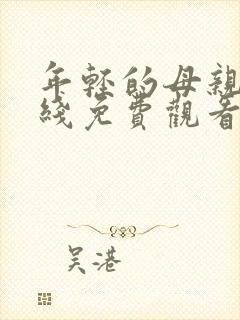 年輕的母親
綫免費觀看
吴港